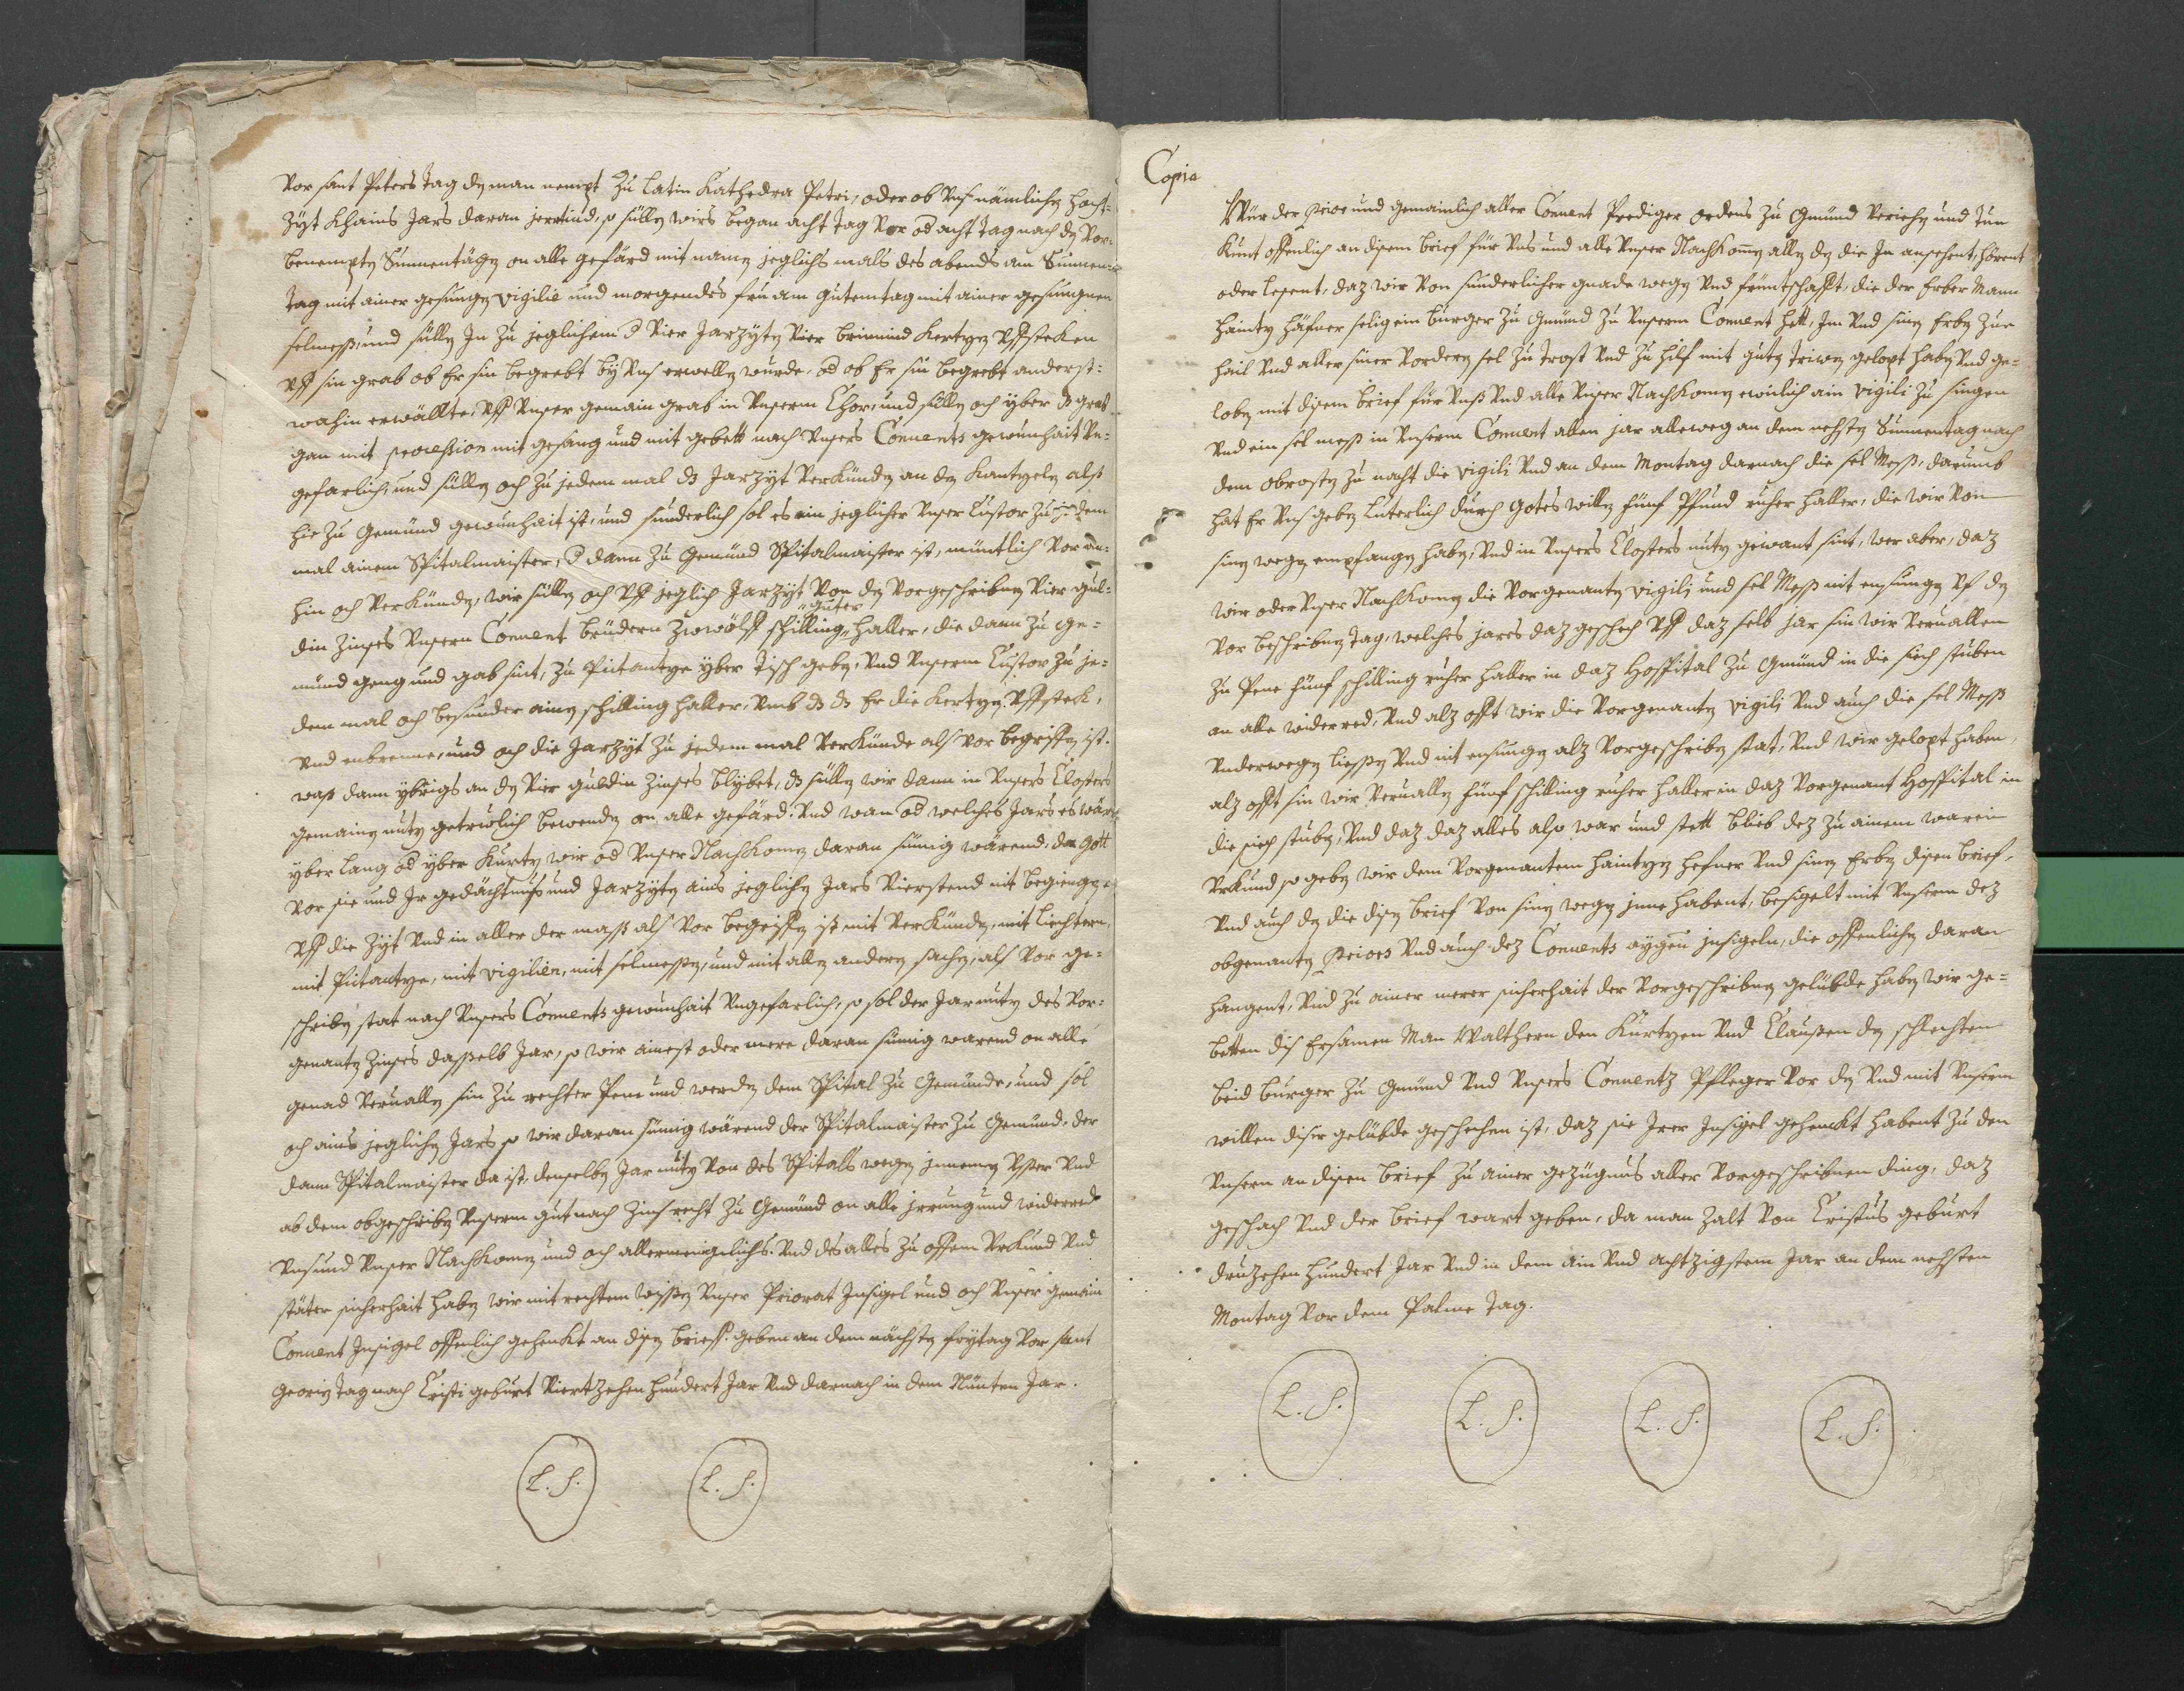 Vor sant Peters tag dz man nempt zu latin Kathedra Petri, oder ob uns nämlichen hoch-
Zyt Khains Jars daran jerrtind, so süllen wirs began acht tag Vor od acht tag nach den Vor-
benempten Sunnentägen on alle gefärd mit namen jeglichs mals des abends am Sunnen-
tag mit ainer gesungen vigilie und morgendes fru am gutemtag mit ainer gesungnen
selmess, und süllen Jn zu jeglichem d Vier Jarzyten Vier brinnind Kertzen Uffsteken
Uff sin grab ob Er sin begrebt by Uns erwellen wurde, od ob Er sin begrebt anderst-
wahin erwällte, Uff Unser gemain grab in Unserm Chor, und süllen och yber dz grab
gan mit procession mit gesang und mit gebett nach Unsers Convents gewunhait Un-
gefarlich, und süllen och zu jedem mal ds Jarzyt Verkünden an den Kantzeln alss
hie zu Gemünd gewunhait ist, und sunderlich sol es ein jeglicher Unser Custor zu jedem
mal ainem Spitalmaister, d dann zu Gemünd Spitalmaister ist, muntlich Vor an-
hin och Verkünden, wir süllen och Uff jeglich Jarzyt Von den Vorgeschribnen Vier gul-
din Zinses Unsern Convent brüdern zwwölff schilling guter haller, die dann zu ge-
mund geng und gab sint, zu Pictantze yber tisch geben, Und Unserm Custor zu je-
dem mal och besunder ainen schilling haller, Umb ds ds Er die Kertzen Uffsteck,
Und enbrenne, und och die Jarzyt zu jedem mal Verkünde als vor begriffen ist.
wass dann ybrigs an den Vier guldin Zinses blybet, ds süllen wir dann in Unsers Closters
gemainen nutz getrwlich bewenden on alle gefärd. Und wan od welches Jars es wär
yber lang od yber kurtz, wir od Unser Nachkomen daran sümig wärend, da gott
vor sie und Jr gedächtnuss und Jarzyten ains jeglichen Jars Vierstend nit begiengen
Uff die Zyt Und in aller der mass als Vor begriffen ist mit Verkünden, mit liechtern
mit Pictantze, mit vigilien, mit selmessen, und mit allen andern sachen, als Vor ge-
schriben stat nach Unsers Convents gewunhait Ungefarlich, so sol der Jarnutz des Vor-
genanten Zinses dasselb Jar, so wir ainest oder mere daran sumig warend on alle
genad Veruallen sin zu rechter Pene und werden dem Spital zu Gemünde, und sol
och ains jeglichen Jars so wir daran sümig wärend der Spitalmaister zu Gemünd, der
dann Spitalmaister da ist, denselben Jarnutz Von des Spitals wegen jnnemen Usser Und
ab dem obgeschriben Unserm gut nach Zinsrecht zu Gemünd on alle jrrung und widerred
Uns und Unser Nachkomen und och allermengelichs. Und des alles zu offem Urkund Und
stäter sicherhait haben wir mit rechtem wissen Unser Priorat Jnsigel und och Unser gemain
Convent Jnsigel offenlich gehenkt an disen brieff. geben an dem nächsten frytag Vor sant
Georien tag nach Cristi geburt Viertzehen hundert Jar Und darnach in dem Nünten Jar.
L. S. L. S.
Copia
Wür der Prior und gemainlich aller Convent Prediger ordens zu Gmünd Veriehen und tun
kunt offenlich an disem brief für Uns und alle Unser Nachkomen allen den die Jn ansehent, hörent
oder lesent, daz wir Von sunderlicher gnade wegen Und früntschafft, die der Erber Mann
Haintz Häfner selig ein burger zu Gmünd zu Unserm Convent hett, Jm Und sinen Erben zue
hail Und aller siner Vordern sel zu trost Und zu hilf mit guten triwen gelopt haben Und ge-
loben mit disem brief für Unss Und alle Unser Nachkomen ewiclich ain vigili zu singen
Und ein sel mess in Unserm Convent allen jar alleweg an dem nehsten Sunnentag nach
dem obrosten zu nacht die vigili Und an dem Montag darnach die sel Mess, darumb
hat Er Uns geben luterlich durch Gotes willen fünf Pfund ruher haller, die wir Von
sinen wegen empfangen haben, Und in Unsers Closters nutz gewant sint, wer aber, daz
wir oder Unser Nachkomen die Vorgenanten vigili und sel Mess nit ensungen Uf den
Vor beschriben tag, welches jares daz geschech Uff daz selb jar sin wir Veruallen
zu Pene fünf schilling ruher haller in daz Hospital zu Gmünd in die siech stuben
an alle widerred, Und alz offt wir die Vorgenanten vigili Und auch die sel Mess
Underwegen liessen Und nit ensungen alz Vorgeschriben stat, Und wir gelopt haben,
alz offt sin wir Veruallen fünf schilling ruher haller in daz Vorgenant Hospital in
die siech stuben, Und daz daz alles also war und stett blieb dez zu ainem waren
Urkund so geben wir dem Vorgenantem Haintzen Hefner Und sinen Erben disen brief,
Und auch den die disen brief Von sinen wegen jnne habent, besigelt mit Unserm dez
obgenanten Priors Und auch dez Convents aygen jnsigeln, die offenlichen daran
hangent, Und zu ainer merer sicherhait der Vorgeschribnen gelübde haben wir ge-
betten dis Ersamen Man Walthern den Kurtzen Und Claussen den schlechten
beid burger zu Gmünd Und Unsers Conventz Pfleger Vor den Und mit Unserm
willen disir gelübde geschehen ist, daz sie Jrer Jnsigel gehenckt habent zu den
Unsern an disen brief zu ainer gezügnus aller Vorgeschribnen ding, daz
geschach Und der brief wart geben, da man zalt Von Cristus geburt
druzehen hundert Jar Und in dem ain Und achtzigstem Jar an dem nehsten
Montag Vor dem Palme tag.
L. S. L. S. L. S. L. S.